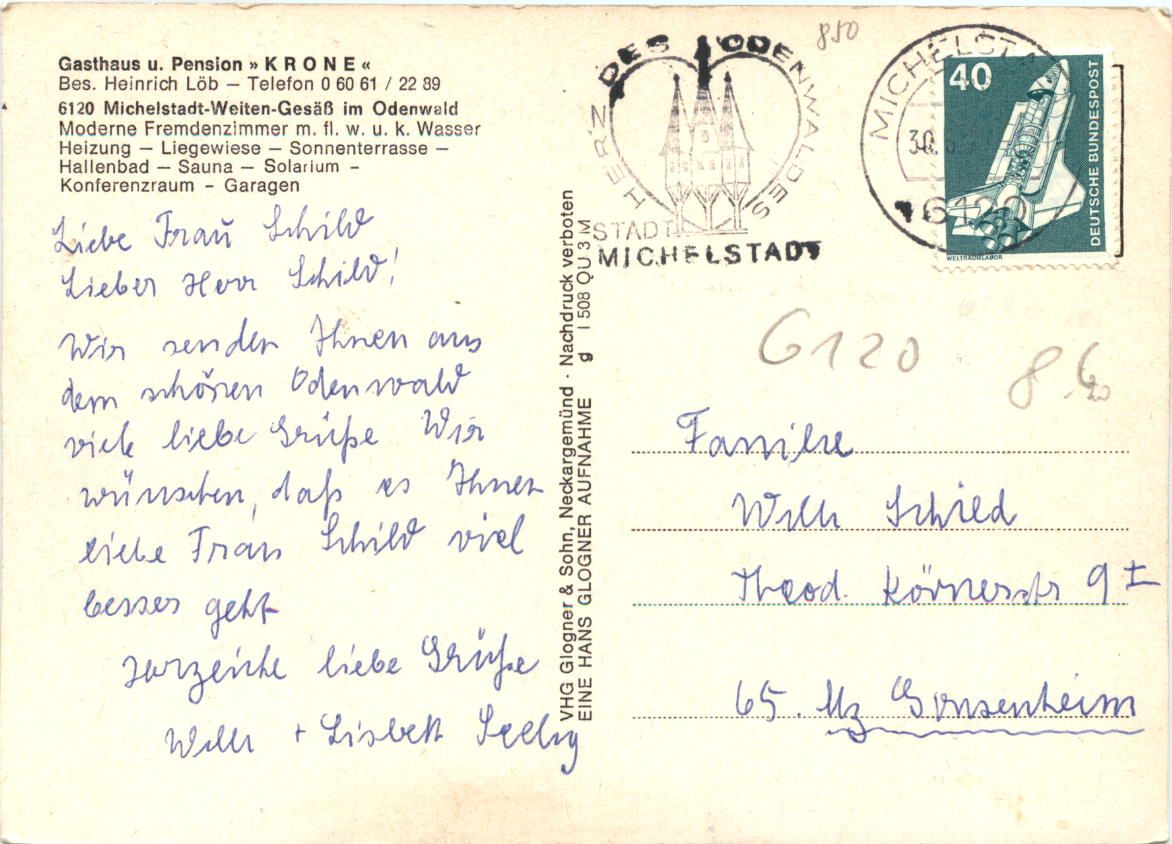 Gasthaus u. Pension » KRONE «
Bes. Heinrich Löb – Telefon 0 60 61 / 22 89
6120 Michelstadt-Weiten-Gesäß im Odenwald
Moderne Fremdenzimmer m. fl. w. u. k. Wasser
Heizung – Liegewiese – Sonnenterrasse –
Hallenbad – Sauna – Solarium –
Konferenzraum – Garagen
Liebe Frau Schild
Lieber Herr Schild!
Wir senden Ihnen aus
dem schönen Odenwald
viele liebe Grüße Wir
wünschen, daß es Ihnen
liebe Frau Schild viel
besser geht
Herzliche liebe Grüße
Willi + Lisbett Seelig
VHG Glogner & Sohn, Neckargemünd · Nachdruck verboten
EINE HANS GLOGNER AUFNAHME g I 508 QU 3 M
HERZ DES ODENWALDES
STADT
MICHELSTADT
850
MICHELSTA
30.
6120
40
DEUTSCHE BUNDESPOST
WELTRAUMLABOR
6120
Familie
Willi Schild
Theod. Körnerstr 9 I
65. Mz Gonsenheim